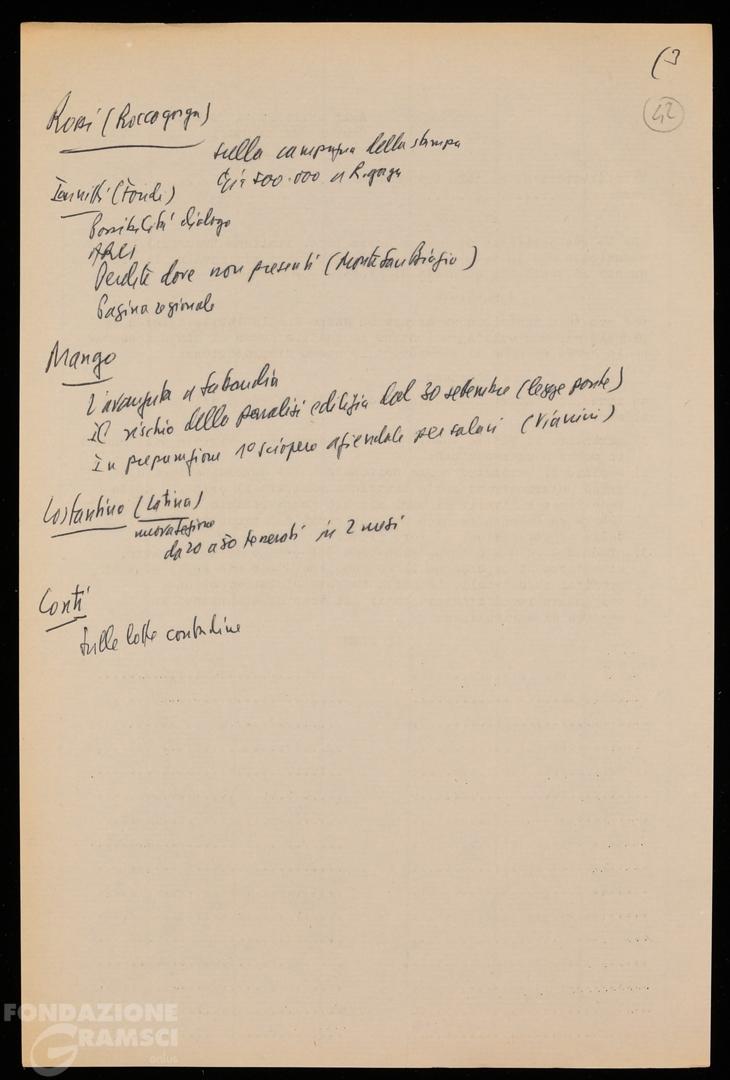 (3
42
Rossi (Roccagorga)
sulla campagna della stampa
Già 500.000 a R.gorga
Iannitti (Fondi)
Possibilità dialogo
ARCI
Perdite dove non presenti (Monte San Biagio)
Pagina regionale
Mango
L'avanzata a Sabaudia
Il rischio della paralisi edilizia dal 30 settembre (legge ponte)
In preparazione 1º sciopero aziendale per salari (Vianini)
Costantino (Latina)
nuova sezione
da 20 a 80 tesserati in 2 mesi
Conti
Sulle lotte contadine
FONDAZIONE
GRAMSCI
onlus